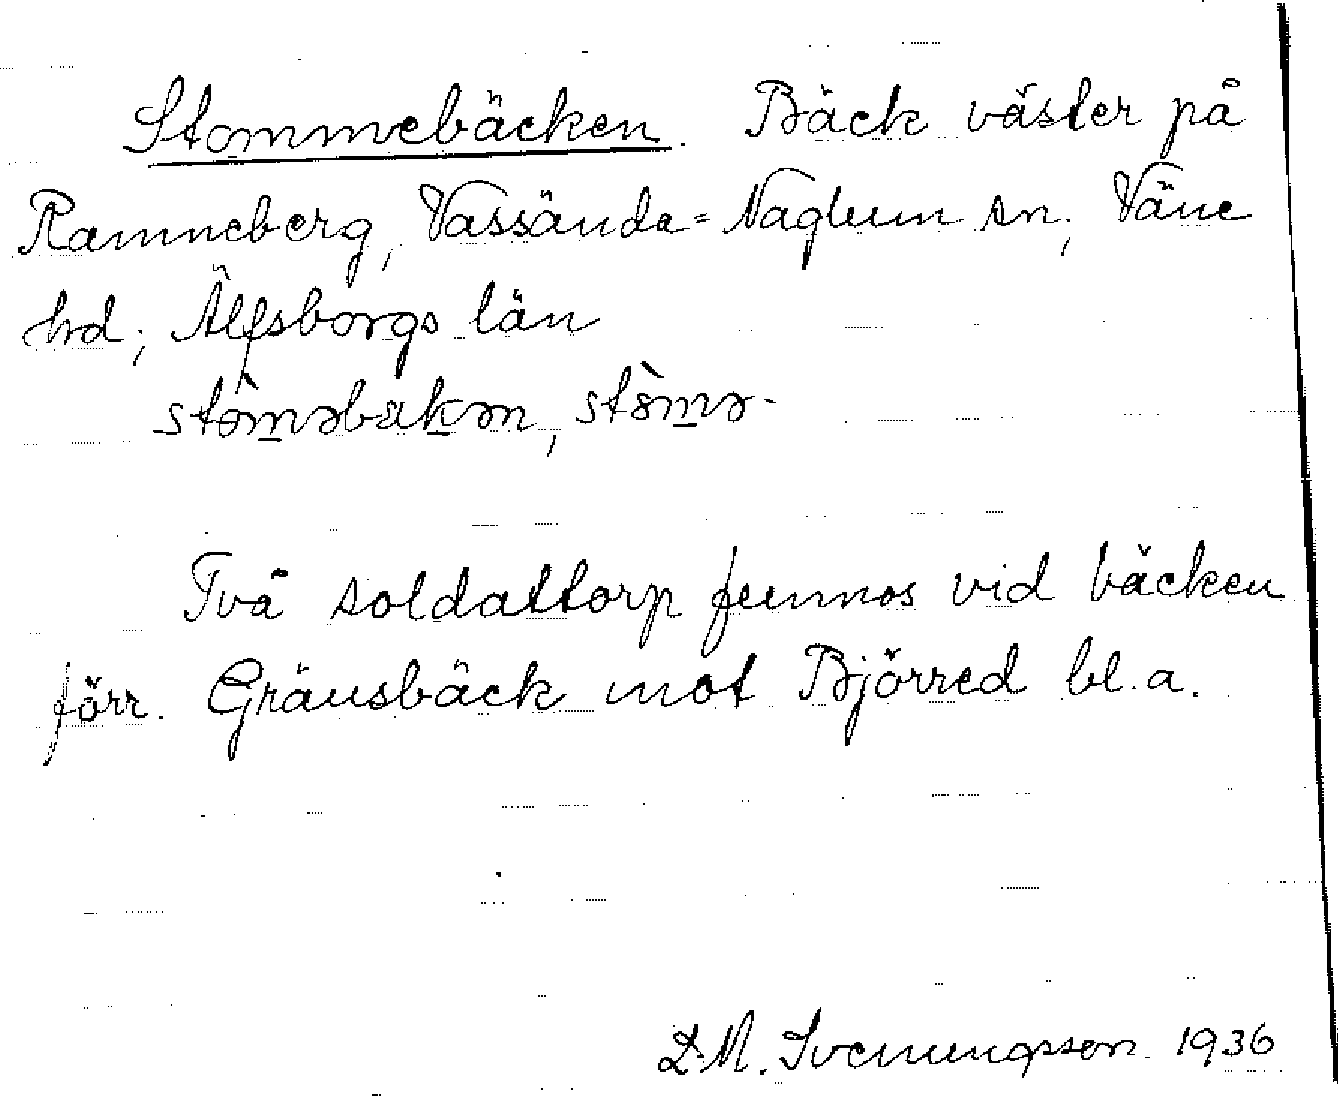 Stommebäcken. Bäck väster på
Ranneberg, Vassända=Naglum sn, Väne
hd, Älfsborgs län
stòm̲əbäk̲ən, stòm̲ə-
Två soldattorp funnos vid bäcken
förr. Gränsbäck mot Björred bl.a.
L.M. Svenungsson 1936